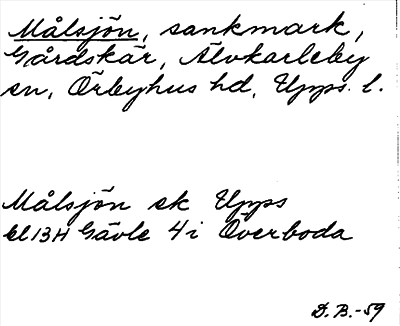 Målsjön, sankmark,
Gårdskär, Älvkarleby
sn, Örbyhus hd, Upps. l.
Målsjön ek Upps
bl 13H Gävle 4i Överboda
D.B.-59